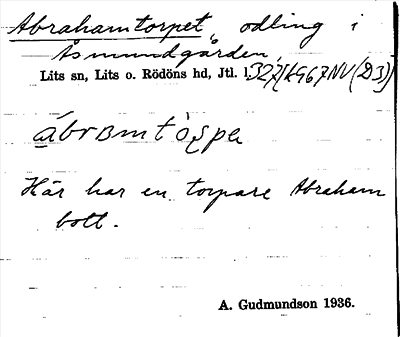 Abrahamtorpet, odling i
Åsmundgården,
Lits sn, Lits o. Rödöns hd, Jtl. l.
Här har en torpare Abraham
bott.
A. Gudmundson 1936.